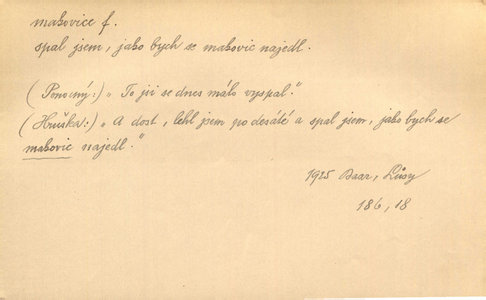 makovice f.
spal jsem, jako bych se makovic najedl.
(Ponocný:) „To jsi se dnes málo vyspal."
(Hruška:) „A dost, lehl jsem po desáté a spal jsem, jako bych se
makovic najedl."
1925 Baar, Lůsy
186, 18